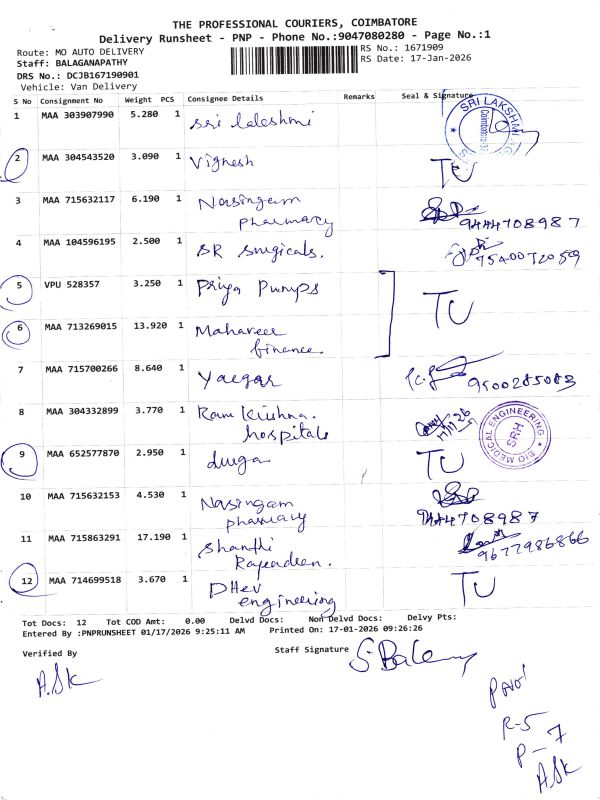 THE PROFESSIONAL COURIERS, COIMBATORE
Delivery Runsheet - PNP - Phone No.:9047080280 - Page No.:1
Route: MO AUTO DELIVERY
RS No.: 1671909
Staff: BALAGANAPATHY
RS Date: 17-Jan-2026
DRS No.: DCJB167190901
Vehicle: Van Delivery
S No Consignment No Weight PCS Consignee Details Remarks Seal & Signature
1 MAA 303907990 5.280 1 Sri lakshmi
SRI LAKSHMI
Coimbatore
2 MAA 304543520 3.090 1 Vignesh TU
3 MAA 715632117 6.190 1 Nasingam
pharmacy 9444708987
4 MAA 104596195 2.500 1 SR Surgicals.
5 VPU 528357 3.250 1 Priya Pumps
TU
6 MAA 713269015 13.920 1 Mahaveer
finance.
7 MAA 715700266 8.640 1 Yaegar 9500285083
8 MAA 304332899 3.770 1 Ram Krishna.
hospitals 17/1/26
BIO MEDICAL ENGINEERING
SRH
9 MAA 652577870 2.950 1 durga TU
10 MAA 715632153 4.530 1 Nasingam
pharmacy 9444708987
11 MAA 715863291 17.190 1 Shanthi
9677986866
12 MAA 714699518 3.670 1 DHev
engineering TU
Tot Docs: 12 Tot COD Amt: 0.00 Delvd Docs: Non Delvd Docs: Delvy Pts:
Entered By :PNPRUNSHEET 01/17/2026 9:25:11 AM Printed On: 17-01-2026 09:26:26
Verified By
Staff Signature
A.SK
R-5
P-7
ASK